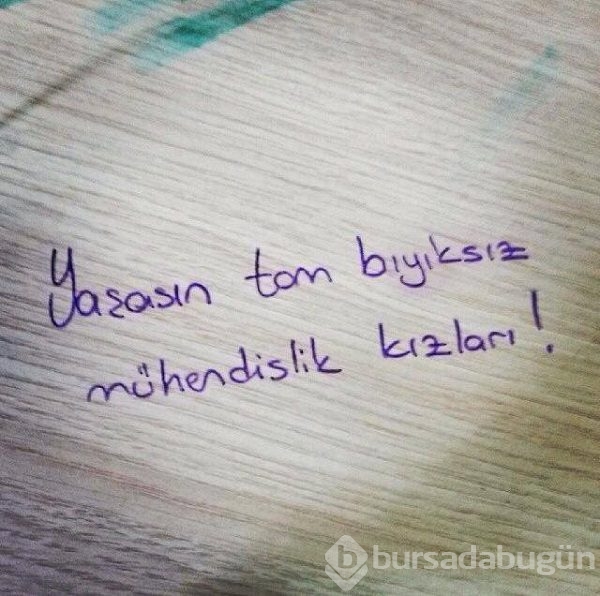 Yaşasın tam bıyıksız
mühendislik kızları!
bursadabugün